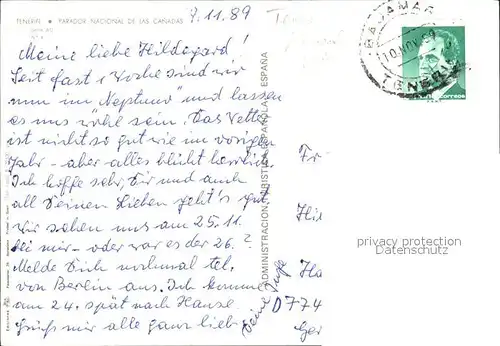 TENERIFE • PARADOR NACIONAL DE LAS CAÑADAS
9.11.89
Meine liebe Hildegard!
Seit fast 1 Woche sind wir
nun im "Neptuno" und lassen
es uns wohl sein. Das Wetter
ist nicht so gut wie im vorigen
Jahr - aber alles blüht herrlich
Ich hoffe sehr, Dir und auch
all Deinen Lieben geht's gut
wir sehen uns am 25.11.
bei mir - oder war es der 26.?
Melde Dich nochmal tel.
von Berlin aus. Ich komme
am 24. spät nach Hause
Grüß mir alle ganz lieb
Deine
ADMINISTRACION TURISTICA ESPAÑOLA ESPAÑA
BAJAMAR
10 NOV 89
TENERIFE
correos
Fr
Hil
Ha
D 774
Ger
privacy protection
Datenschutz